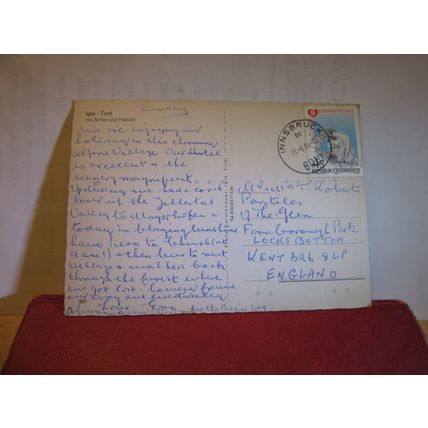 Igls - Tirol
mit Serles und Habicht
Sunday
We are enjoying our
holiday in this charming
alpine Village. Our Hotel
is excellent & the
scenery magnificent.
Yesterday we had a coach
tour up the Zillertal
Valley to Mayrhofen &
today in blazing sunshine
have been to church (at
9 am!!) & then bus to next
Village & walked back
through the forest where
we got lost - however found
our way out eventually
Love
201
INNSBRUCK
6020
REPUBLIK ÖSTERREICH
Roberts
17 The Glen
Farnborough Park
LOCKSBOTTOM
KENT BR6 8LP
ENGLAND